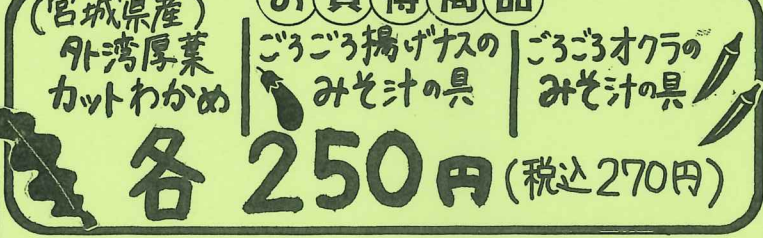 お買得商品
(宮城県産)
外湾厚葉
カットわかめ
ごろごろ揚げナスの
みそ汁の具
ごろごろオクラの
みそ汁の具
各250円(税込270円)